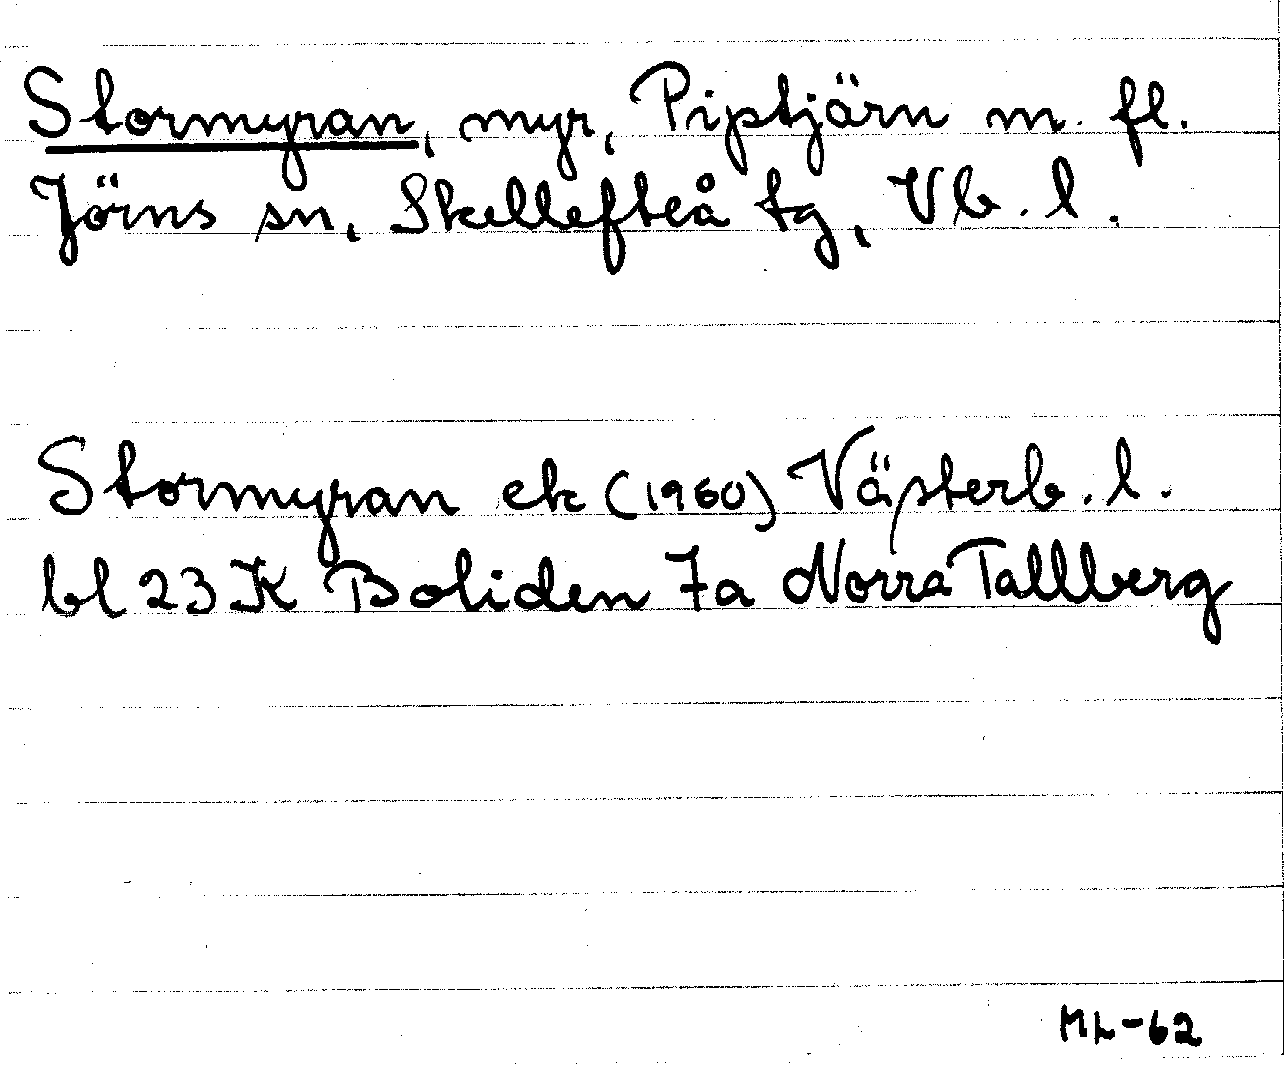 Stormyran, myr, Piptjärn m. fl.
Jörns sn, Skellefteå tg, Vb. l.
Stormyran ek (1960) Västerb. l.
bl 23 K Boliden 7a Norra Tallberg
ML-62